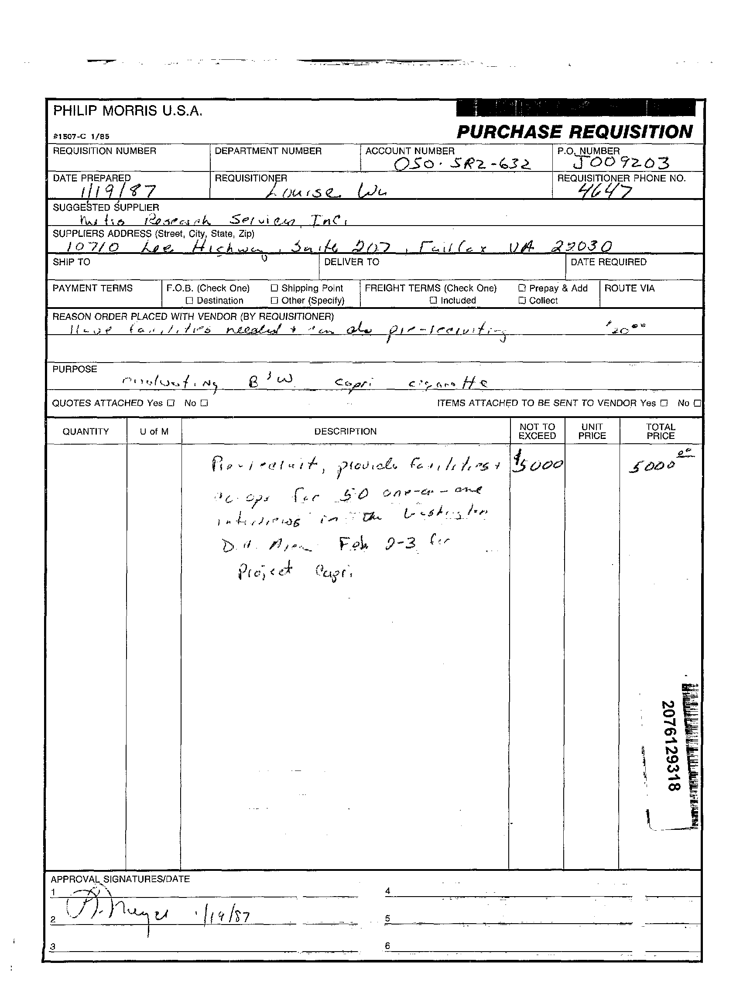 PHILIP MORRIS U.S.A.
#1507-C 1/85
PURCHASE REQUISITION
REQUISITION NUMBER DEPARTMENT NUMBER ACCOUNT NUMBER P.O. NUMBER
050·SR2-632 J009203
DATE PREPARED REQUISITIONER REQUISITIONER PHONE NO.
1/19/87 Louise Wu 4647
SUGGESTED SUPPLIER
Research Services Inc.
SUPPLIERS ADDRESS (Street, City, State, Zip)
10710 Lee Highway, Suite 207, Fairfax VA 22030
SHIP TO DELIVER TO DATE REQUIRED
PAYMENT TERMS F.O.B. (Check One) ☐ Shipping Point FREIGHT TERMS (Check One) ☐ Prepay & Add ROUTE VIA
☐ Destination ☐ Other (Specify) ☐ Included ☐ Collect
REASON ORDER PLACED WITH VENDOR (BY REQUISITIONER)
Have facilities needed + can do pre-recruiting
PURPOSE
evaluating B&W Capri cigarette
QUOTES ATTACHED Yes ☐ No ☐ ITEMS ATTACHED TO BE SENT TO VENDOR Yes ☐ No ☐
QUANTITY U of M DESCRIPTION NOT TO EXCEED UNIT PRICE TOTAL PRICE
Pre-recruit, provide facilities + $5000 5000 00
for 50 one-on-one
interviews in the Washington
D.C. Area Feb 2-3 for
Project Capri
2076129318
APPROVAL SIGNATURES/DATE
1 4
2 Meyer 1/19/87 5
3 6